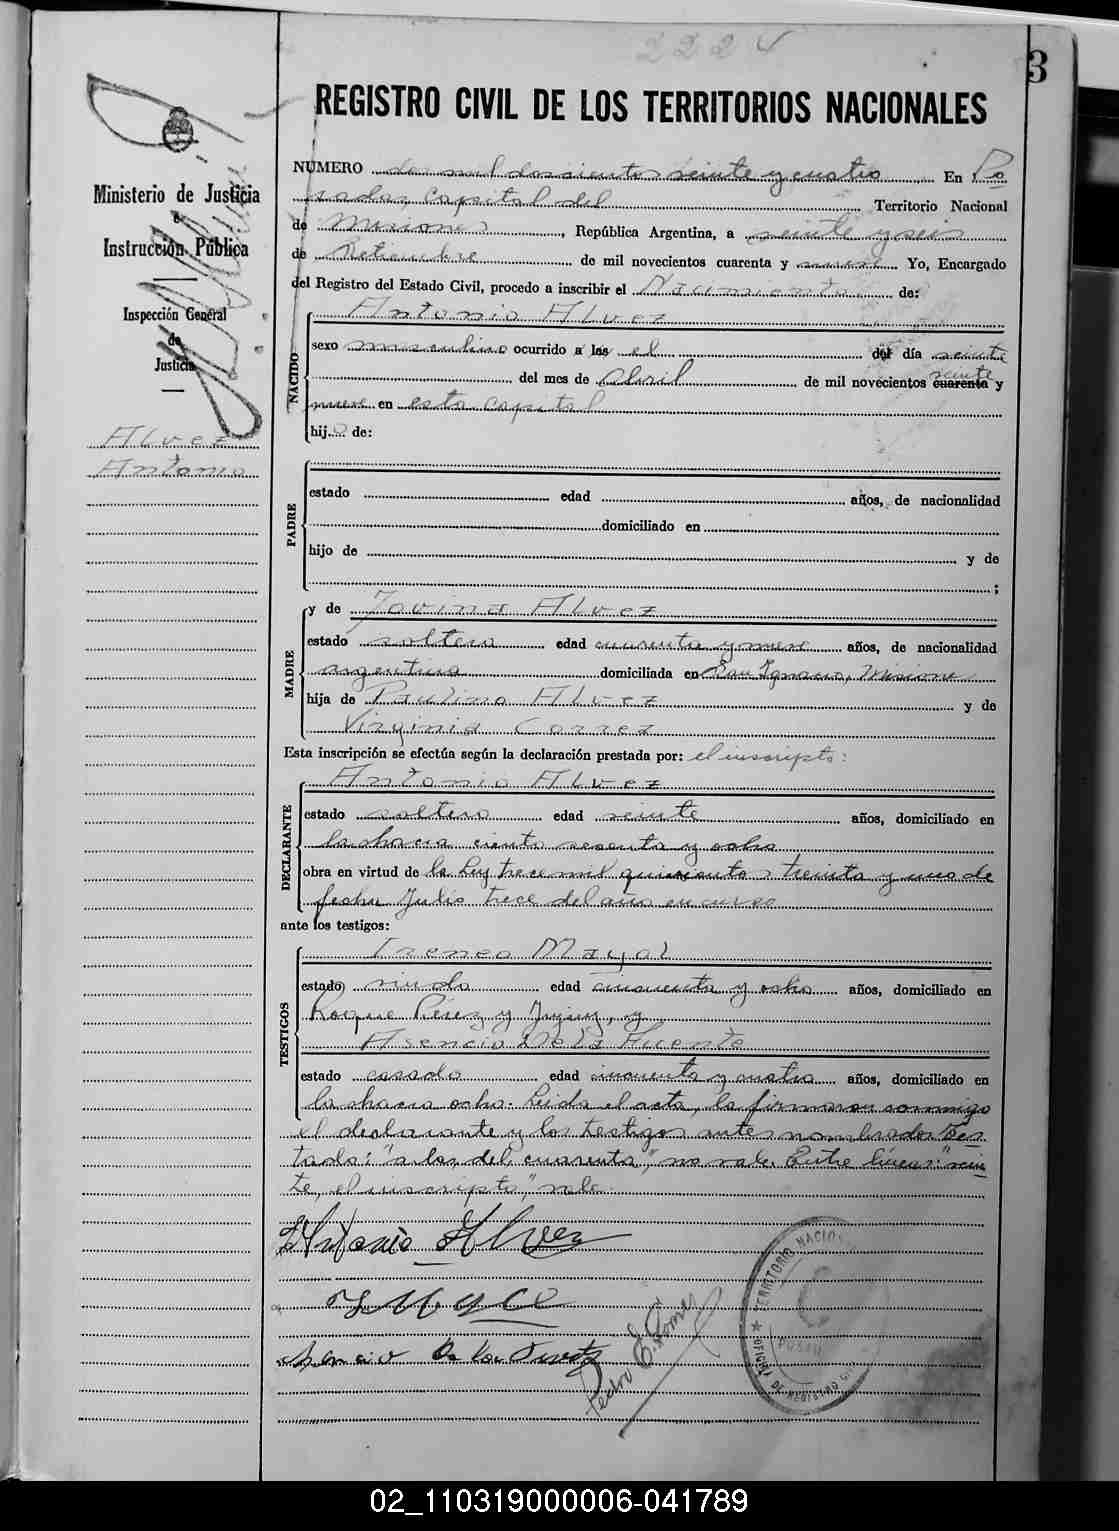 2224
3
REGISTRO CIVIL DE LOS TERRITORIOS NACIONALES
Ministerio de Justicia
e
Instrucción Pública
Inspección General
de
Justicia
Alvez
Antonio
NUMERO dos mil doscientos veinte y cuatro En Po
sadas, Capital del Territorio Nacional
de Misiones, República Argentina, a veinte y seis
de Setiembre de mil novecientos cuarenta y nueve Yo, Encargado
del Registro del Estado Civil, procedo a inscribir el Nacimiento de:
Antonio Alvez
NACIDO
sexo masculino ocurrido a las el del día veinte
veinte
del mes de Abril de mil novecientos cuarenta y
nueve en esta capital
hijo de:
PADRE
estado edad años, de nacionalidad
domiciliado en
hijo de y de
;
MADRE
y de Jovina Alvez
estado soltera edad cuarenta y nueve años, de nacionalidad
argentina domiciliada en San Ignacio, Misiones
hija de Paulino Alvez y de
Virginia Correz
Esta inscripción se efectúa según la declaración prestada por: el inscripto:
DECLARANTE
Antonio Alvez
estado soltero edad veinte años, domiciliado en
la chacra ciento sesenta y ocho
obra en virtud de la Ley trece mil quinientos treinta y uno de
fecha Julio trece del año en curso
ante los testigos:
TESTIGOS
Ireneo Mayol
estado viudo edad cincuenta y ocho años, domiciliado en
Roque Pérez y Jujuy, y
Asencio De la Fuente
estado casado edad cincuenta y cuatro años, domiciliado en
la chacra ocho. Leída el acta, la firmaron conmigo
el declarante y los testigos antes nombrados. Tes-
tado: "a las, del, cuarenta," no vale. Entre líneas: "vein
te, el inscripto," vale.
Antonio Alvez
Asencio De la Fuente
Pedro E. Gomez
TERRITORIO NACIONAL
POSADAS
OFICINA DE REGISTRO CIVIL
02_110319000006-041789